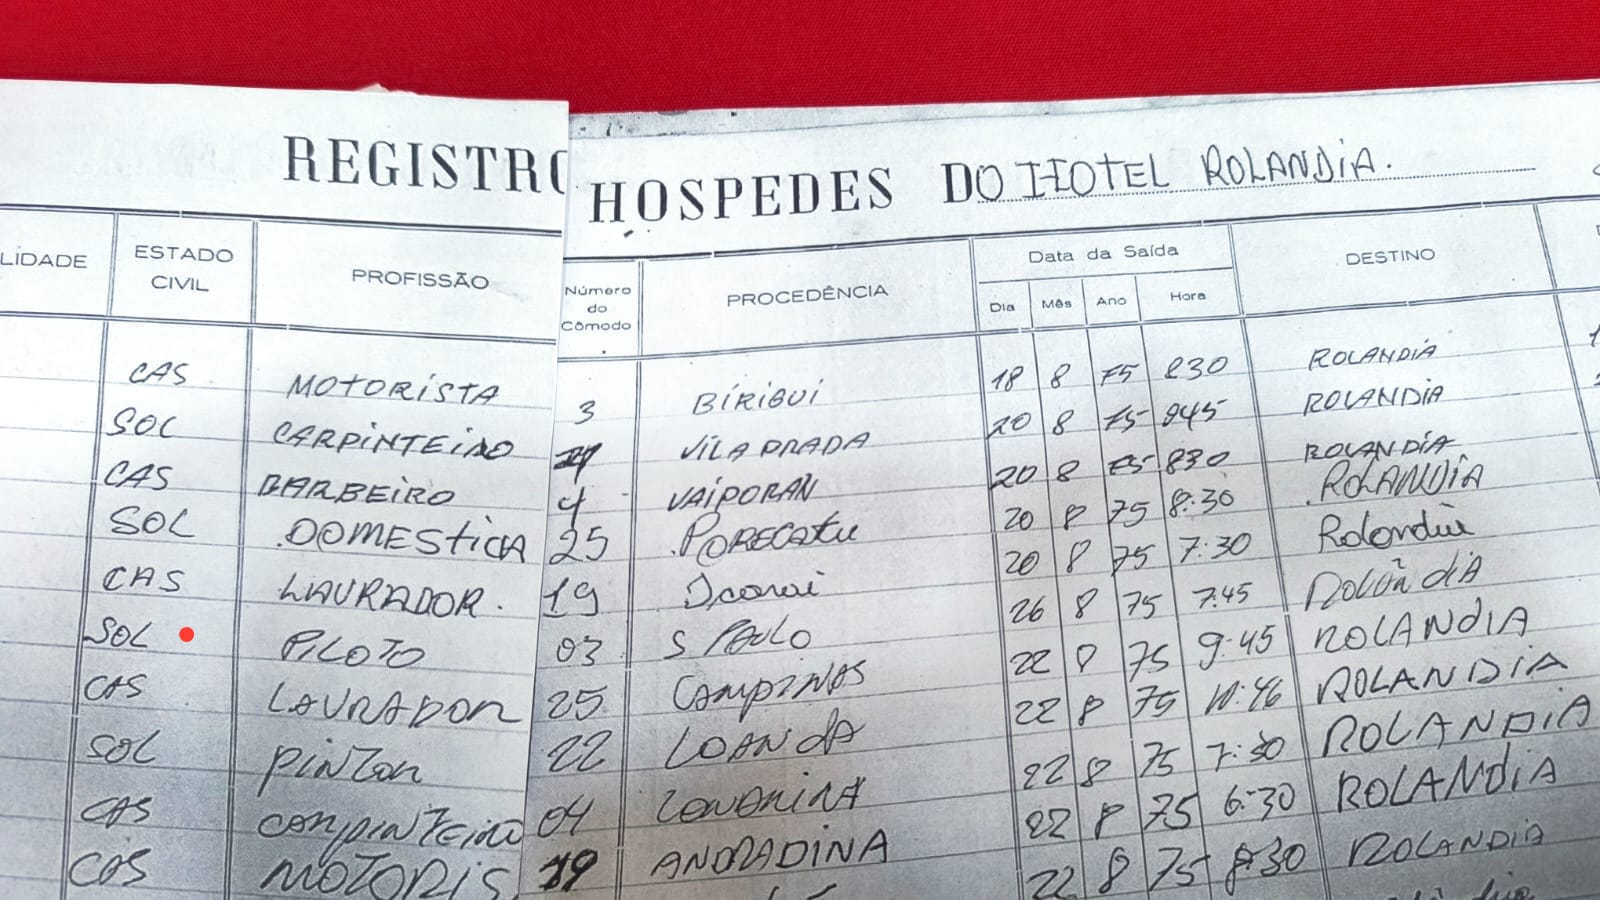 REGISTRO HOSPEDES DO HOTEL ROLANDIA.
LIDADE ESTADO CIVIL PROFISSÃO Número do Cômodo PROCEDÊNCIA Data da Saída DESTINO
Dia Mês Ano Hora
CAS MOTORISTA 3 BIRIGUI 18 8 75 830 ROLANDIA
SOL CARPINTEIRO VILA PRADA 20 8 75 945 ROLANDIA
CAS BARBEIRO 4 VAIPORAN 20 8 75 830 ROLANDIA
SOL DOMESTICA 25 PORECATU 20 8 75 8:30 ROLANDIA
CAS LAVRADOR. 19 Icaraí 20 8 75 7:30 Rolandia
SOL PILOTO 03 S PAULO 26 8 75 7:45 ROLÂNDIA
CAS LAVRADOR 25 CAMPINAS 22 8 75 9:45 ROLANDIA
SOL PINTOR 22 LOANDA 22 8 75 10:46 ROLANDIA
CAS CARPINTEIRO 04 LONDRINA 22 8 75 7:30 ROLANDIA
CAS MOTORIS 19 ANDRADINA 22 8 75 6:30 ROLANDIA
22 8 75 8:30 ROLANDIA